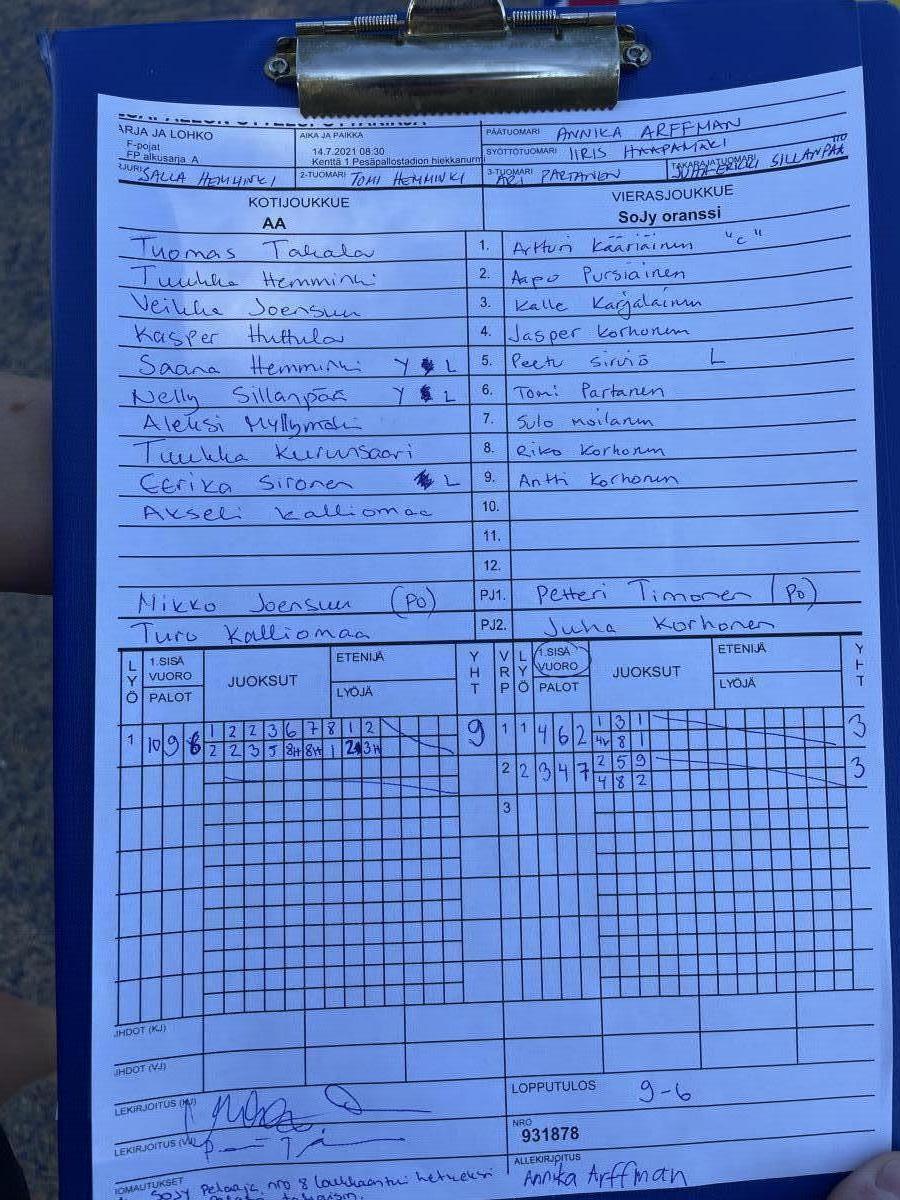 ARJA JA LOHKO
F-pojat
FP alkusarja A
AIKA JA PAIKKA
14.7.2021 08:30
Kenttä 1 Pesäpallostadion hiekkanurmi
PÄÄTUOMARI ANNIKA ARFFMAN
SYÖTTÖTUOMARI IIRIS HAAPAMÄKI
SALLA HEMMINKI
2-TUOMARI TOMI HEMMINKI
3-TUOMARI ARI PARTANEN
TAKARAJATUOMARI JUHA-ERKKI SILLANPÄÄ
KOTIJOUKKUE
AA
VIERASJOUKKUE
SoJy oranssi
Tuomas Takala 1. Artturi Kääriäinen "c"
Tuukka Hemminki 2. Aapo Pursiainen
Veikka Joensuu 3. Kalle Karjalainen
Kasper Huttula 4. Jasper Korhonen
Saana Hemminki Y L 5. Peetu Sirviö L
Nelly Sillanpää Y L 6. Tomi Partanen
Aleksi Myllymäki 7. Sulo Moilanen
Tuukka Kurunsaari 8. Riko Korhonen
Eerika Sironen L 9. Antti Korhonen
Akseli Kalliomaa 10.
11.
12.
Mikko Joensuu (PO) PJ1. Petteri Timonen (PO)
Turo Kalliomaa PJ2. Juha Korhonen
LYÖ 1.SISÄ VUORO PALOT JUOKSUT ETENIJÄ LYÖJÄ YHT VRP LYÖ 1.SISÄ VUORO PALOT JUOKSUT ETENIJÄ LYÖJÄ YHT
1 10 9 6 1 2 2 3 6 7 8 1 2 9 1 1 4 6 2 1 3 1 3
2 2 3 5 8H 8H 1 2 3H 4V 8 1
2 2 3 4 7 2 5 9 3
4 8 2
3
JHDOT (KJ)
JHDOT (VJ)
LEKIRJOITUS (KJ)
LEKIRJOITUS (VJ)
LOPPUTULOS 9-6
NRO
931878
ALLEKIRJOITUS
Annika Arffman
IOMAUTUKSET
SoJy Pelaaja nro 8 loukkaantui hetkeksi
takaisin.